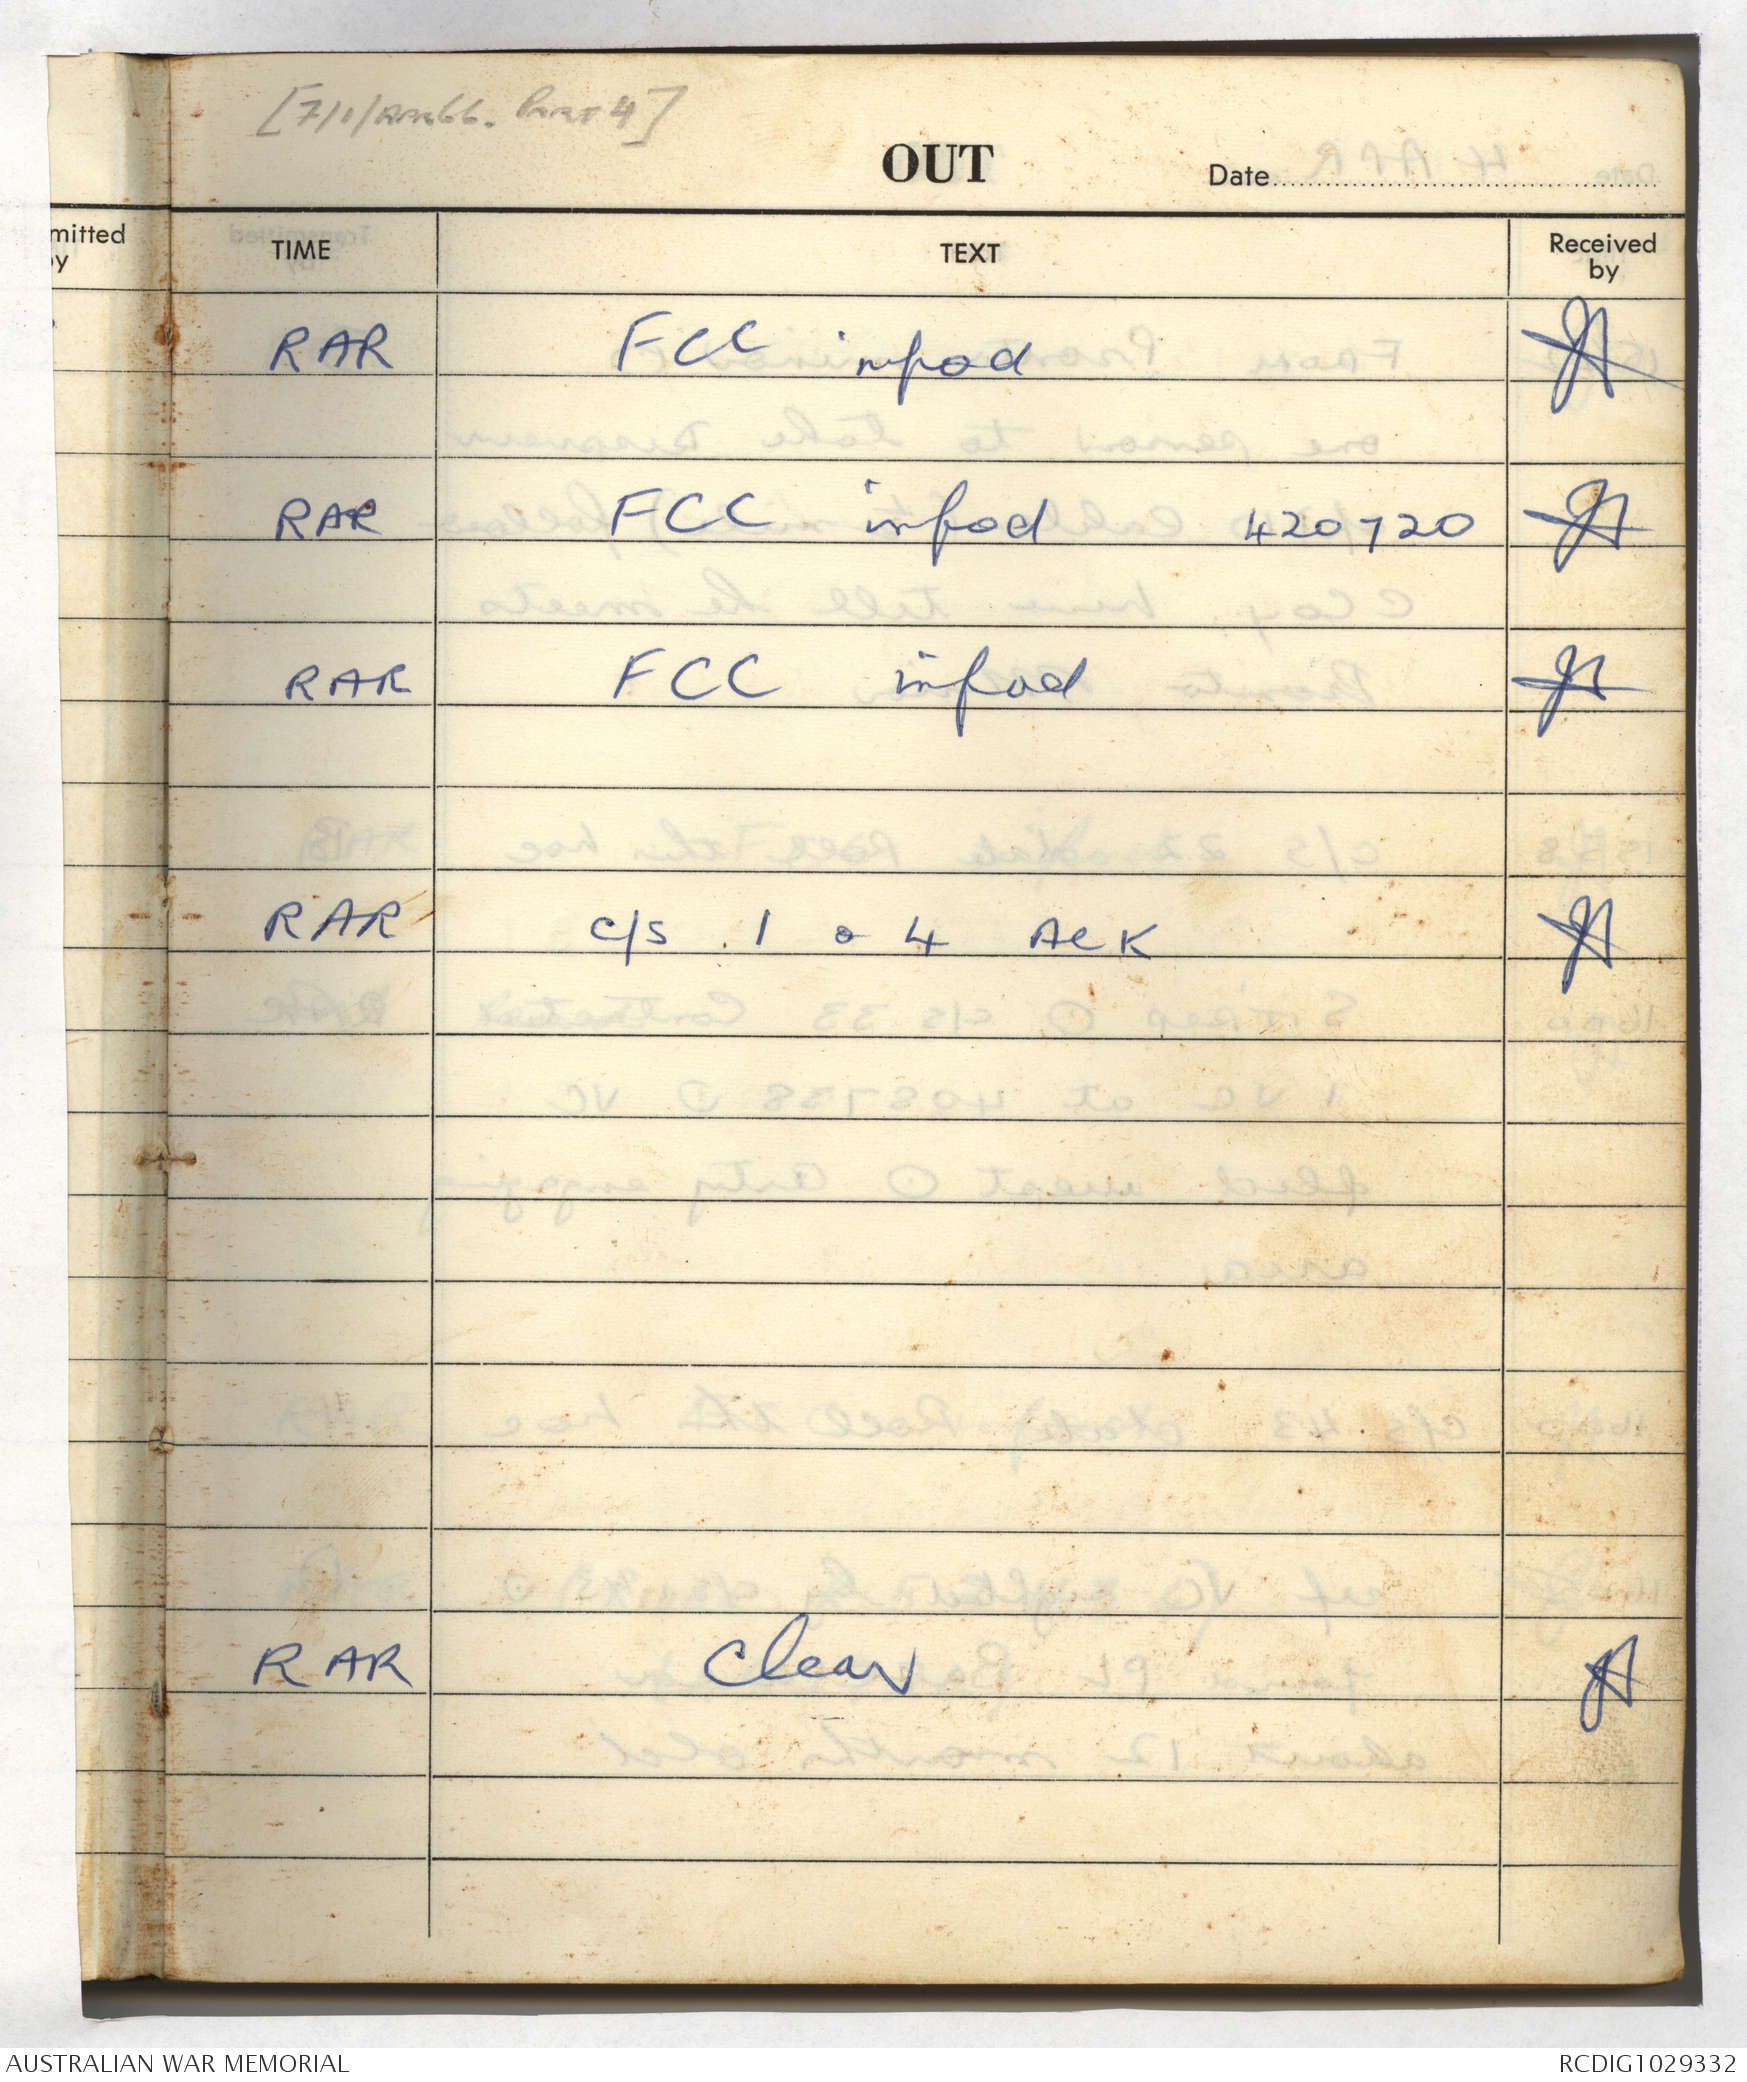 [7/1/RAR66. PART 4]
OUT
Date
mitted
y
TIME
TEXT
Received
by
RAR FCC infod
RAR FCC infod 420720
RAR FCC infod
RAR c/s 1 & 4 ACK
RAR Clear
AUSTRALIAN WAR MEMORIAL
RCDIG1029332